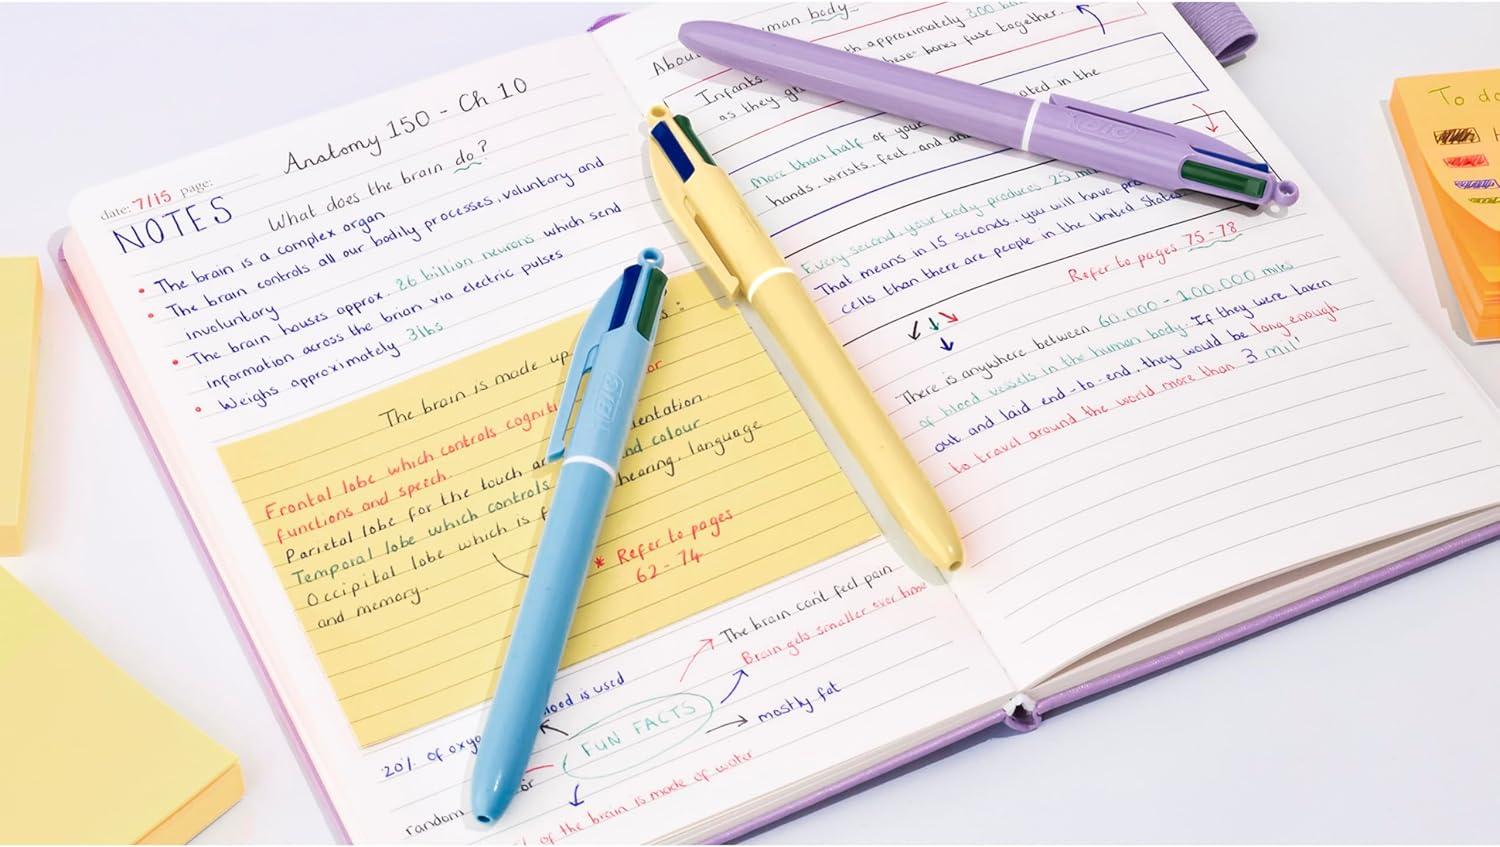 date: 7/15 page:
Anatomy 150 - Ch 10
NOTES
What does the brain do?
The brain is a complex organ
The brain controls all our bodily processes, voluntary and
involuntary
The brain houses approx. 86 billion neurons which send
information across the brian via electric pulses
Weighs approximately 3lbs
The brain is made up :
Frontal lobe which controls
functions and speech.
Parietal lobe for the touch
Temporal lobe which controls hearing, language
Occipital lobe which is and colour
and memory.
* Refer to pages
62 - 74
FUN FACTS
The brain can't feel pain
Brain gets smaller over time
mostly fat
of the brain is made of water
random
20% of blood is used
About human body
Infants with approximately 300
as they these bones fuse together.
More than half of your located in the
hands, wrists, feet, and
Every second, your body produces 25
That means in 15 seconds, you will have
cells than there are people in the United States
Refer to pages 75-78
There is anywhere between 60,000 - 100,000 miles
of blood vessels in the human body. If they were taken
out and laid end-to-end, they would be long enough
to travel around the world more than 3
To do
BIC
BIC